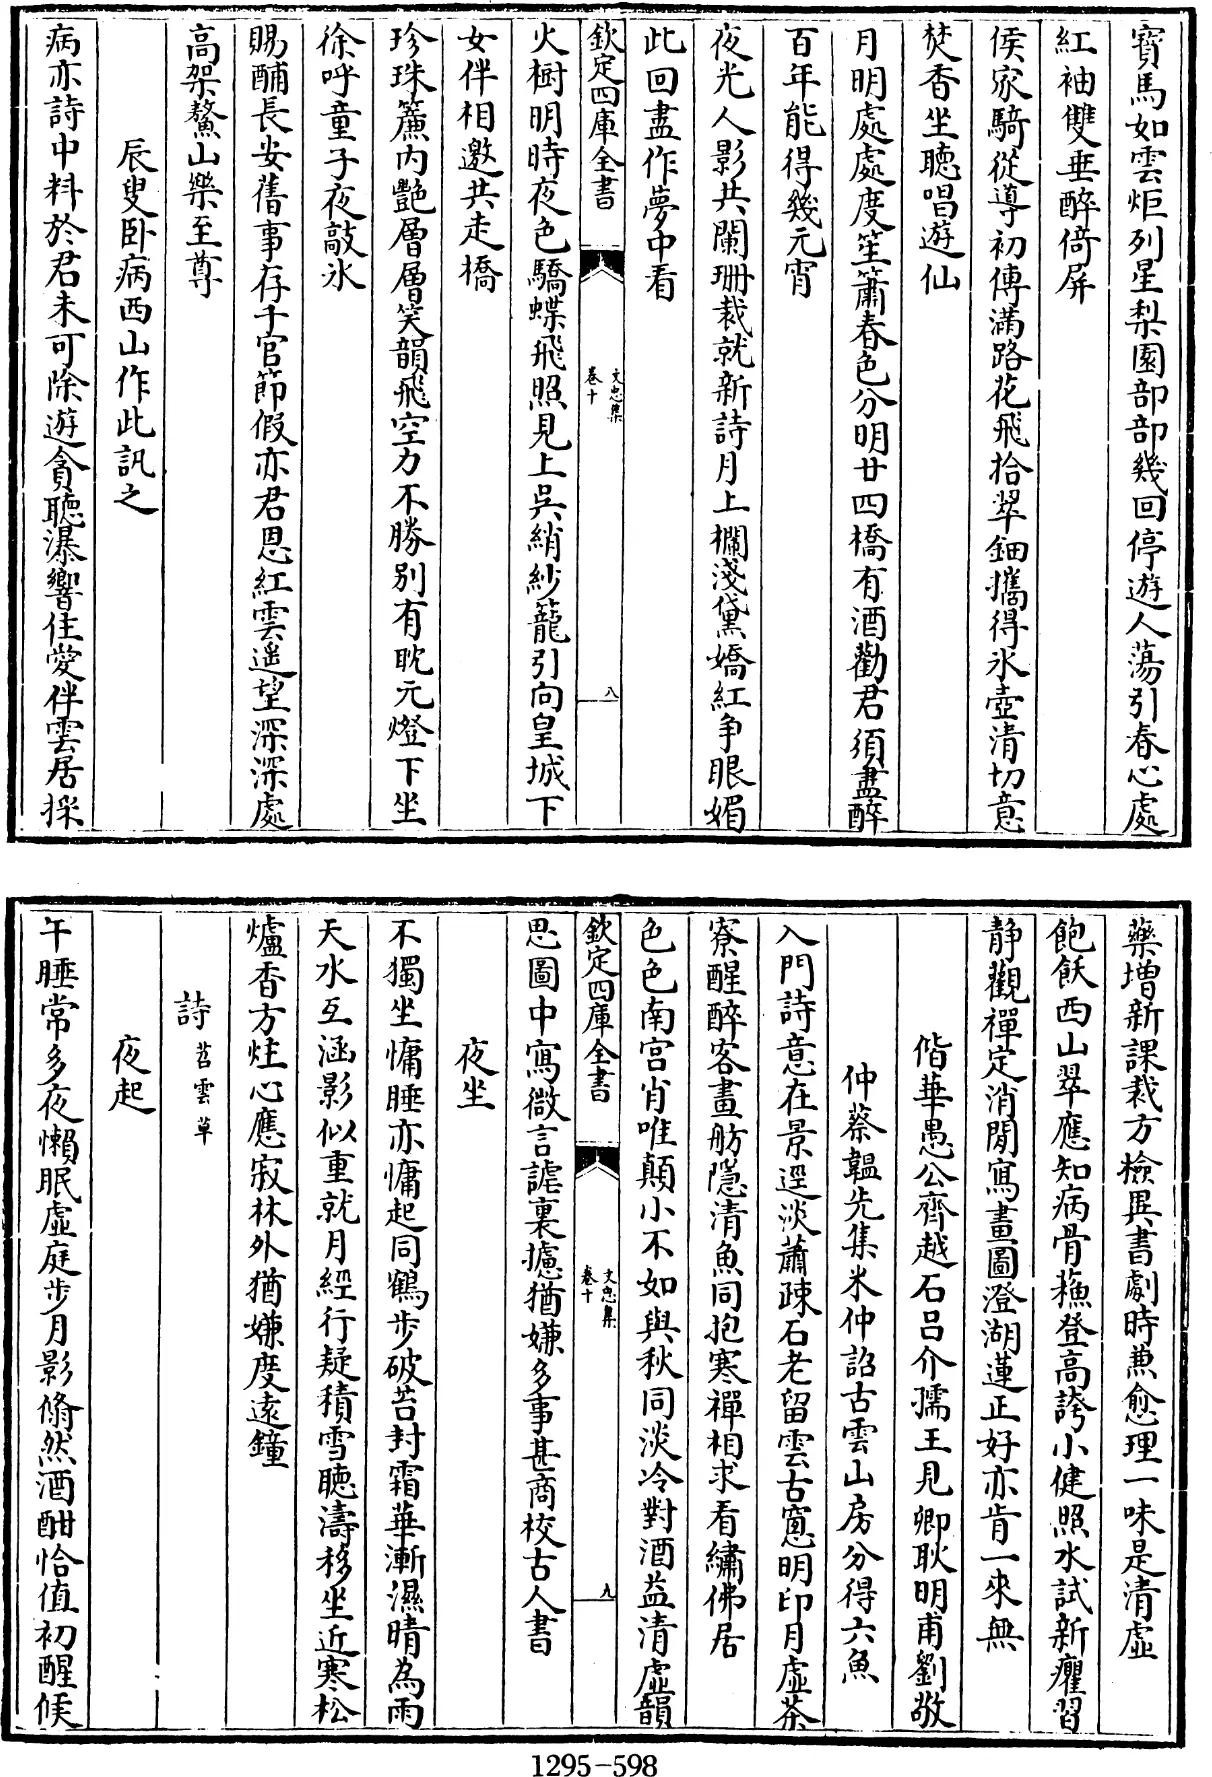 寶馬如雲炬列星梨園部部幾回停遊人蕩引春心處
紅袖雙垂醉倚屏
侯家騎從導初傳滿路花飛拾翠鈿攜得氷壺清切意
焚香坐聽唱遊仙
月明處處度笙簫春色分明廿四橋有酒勸君須盡醉
百年能得幾元宵
夜光人影共闌珊裁就新詩月上欄淺黛嬌紅争眼媚
此回盡作夢中看
欽定四庫全書
文忠集
卷十
八
火樹明時夜色驕蝶飛照見上吳綃紗籠引向皇城下
女伴相邀共走橋
珍珠簾内艷層層笑韻飛空力不勝别有耽元燈下坐
徐呼童子夜敲氷
賜酺長安舊事存千官節假亦君恩紅雲遥望深深處
高架鰲山樂至尊
辰叟卧病西山作此訊之
病亦詩中料於君未可除遊貪聽瀑響住愛伴雲居採
藥增新課裁方檢異書劇時無愈理一味是清虛
飽飫西山翠應知病骨蘓登高誇小健照水試新癯習
靜觀禪定消閒寫畫圖澄湖蓮正好亦肯一來無
偕華愚公齊越石吕介孺王見卿耿明甫劉敬
仲蔡韞先集米仲詔古雲山房分得六魚
入門詩意在景逕淡蕭踈石老留雲古窻明印月虛茶
寮醒醉客畫舫隱清魚同抱寒禪相求看繡佛居
色色南宫肖唯顛小不如與秋同淡冷對酒益清虛韻
欽定四庫全書
文忠集
卷十
九
思圖中寫微言謔裏攄猶嫌多事甚商校古人書
夜坐
不獨坐慵睡亦慵起同鶴步破苔封霜華漸濕晴為雨
天水互涵影似重就月經行疑積雪聽濤移坐近寒松
爐香方炷心應寂林外猶嫌度遠鐘
詩 苕雲草
夜起
午睡常多夜懶眠虛庭步月影翛然酒酣恰值初醒候
1295-598